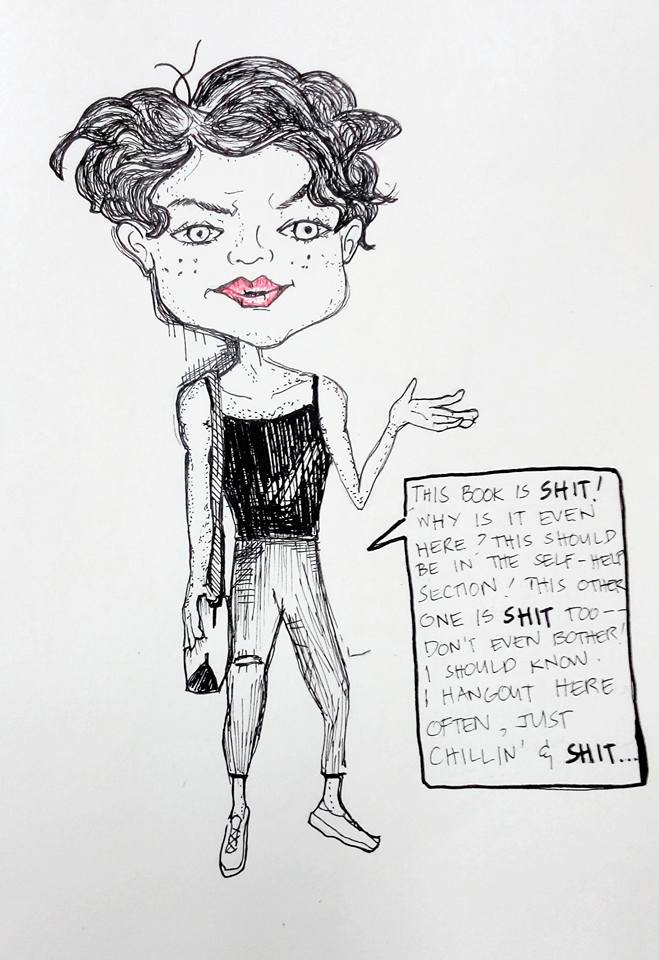 THIS BOOK IS SHIT!
WHY IS IT EVEN
HERE? THIS SHOULD
BE IN THE SELF-HELP
SECTION! THIS OTHER
ONE IS SHIT TOO--
DON'T EVEN BOTHER!
I SHOULD KNOW.
I HANGOUT HERE
OFTEN, JUST
CHILLIN' & SHIT...